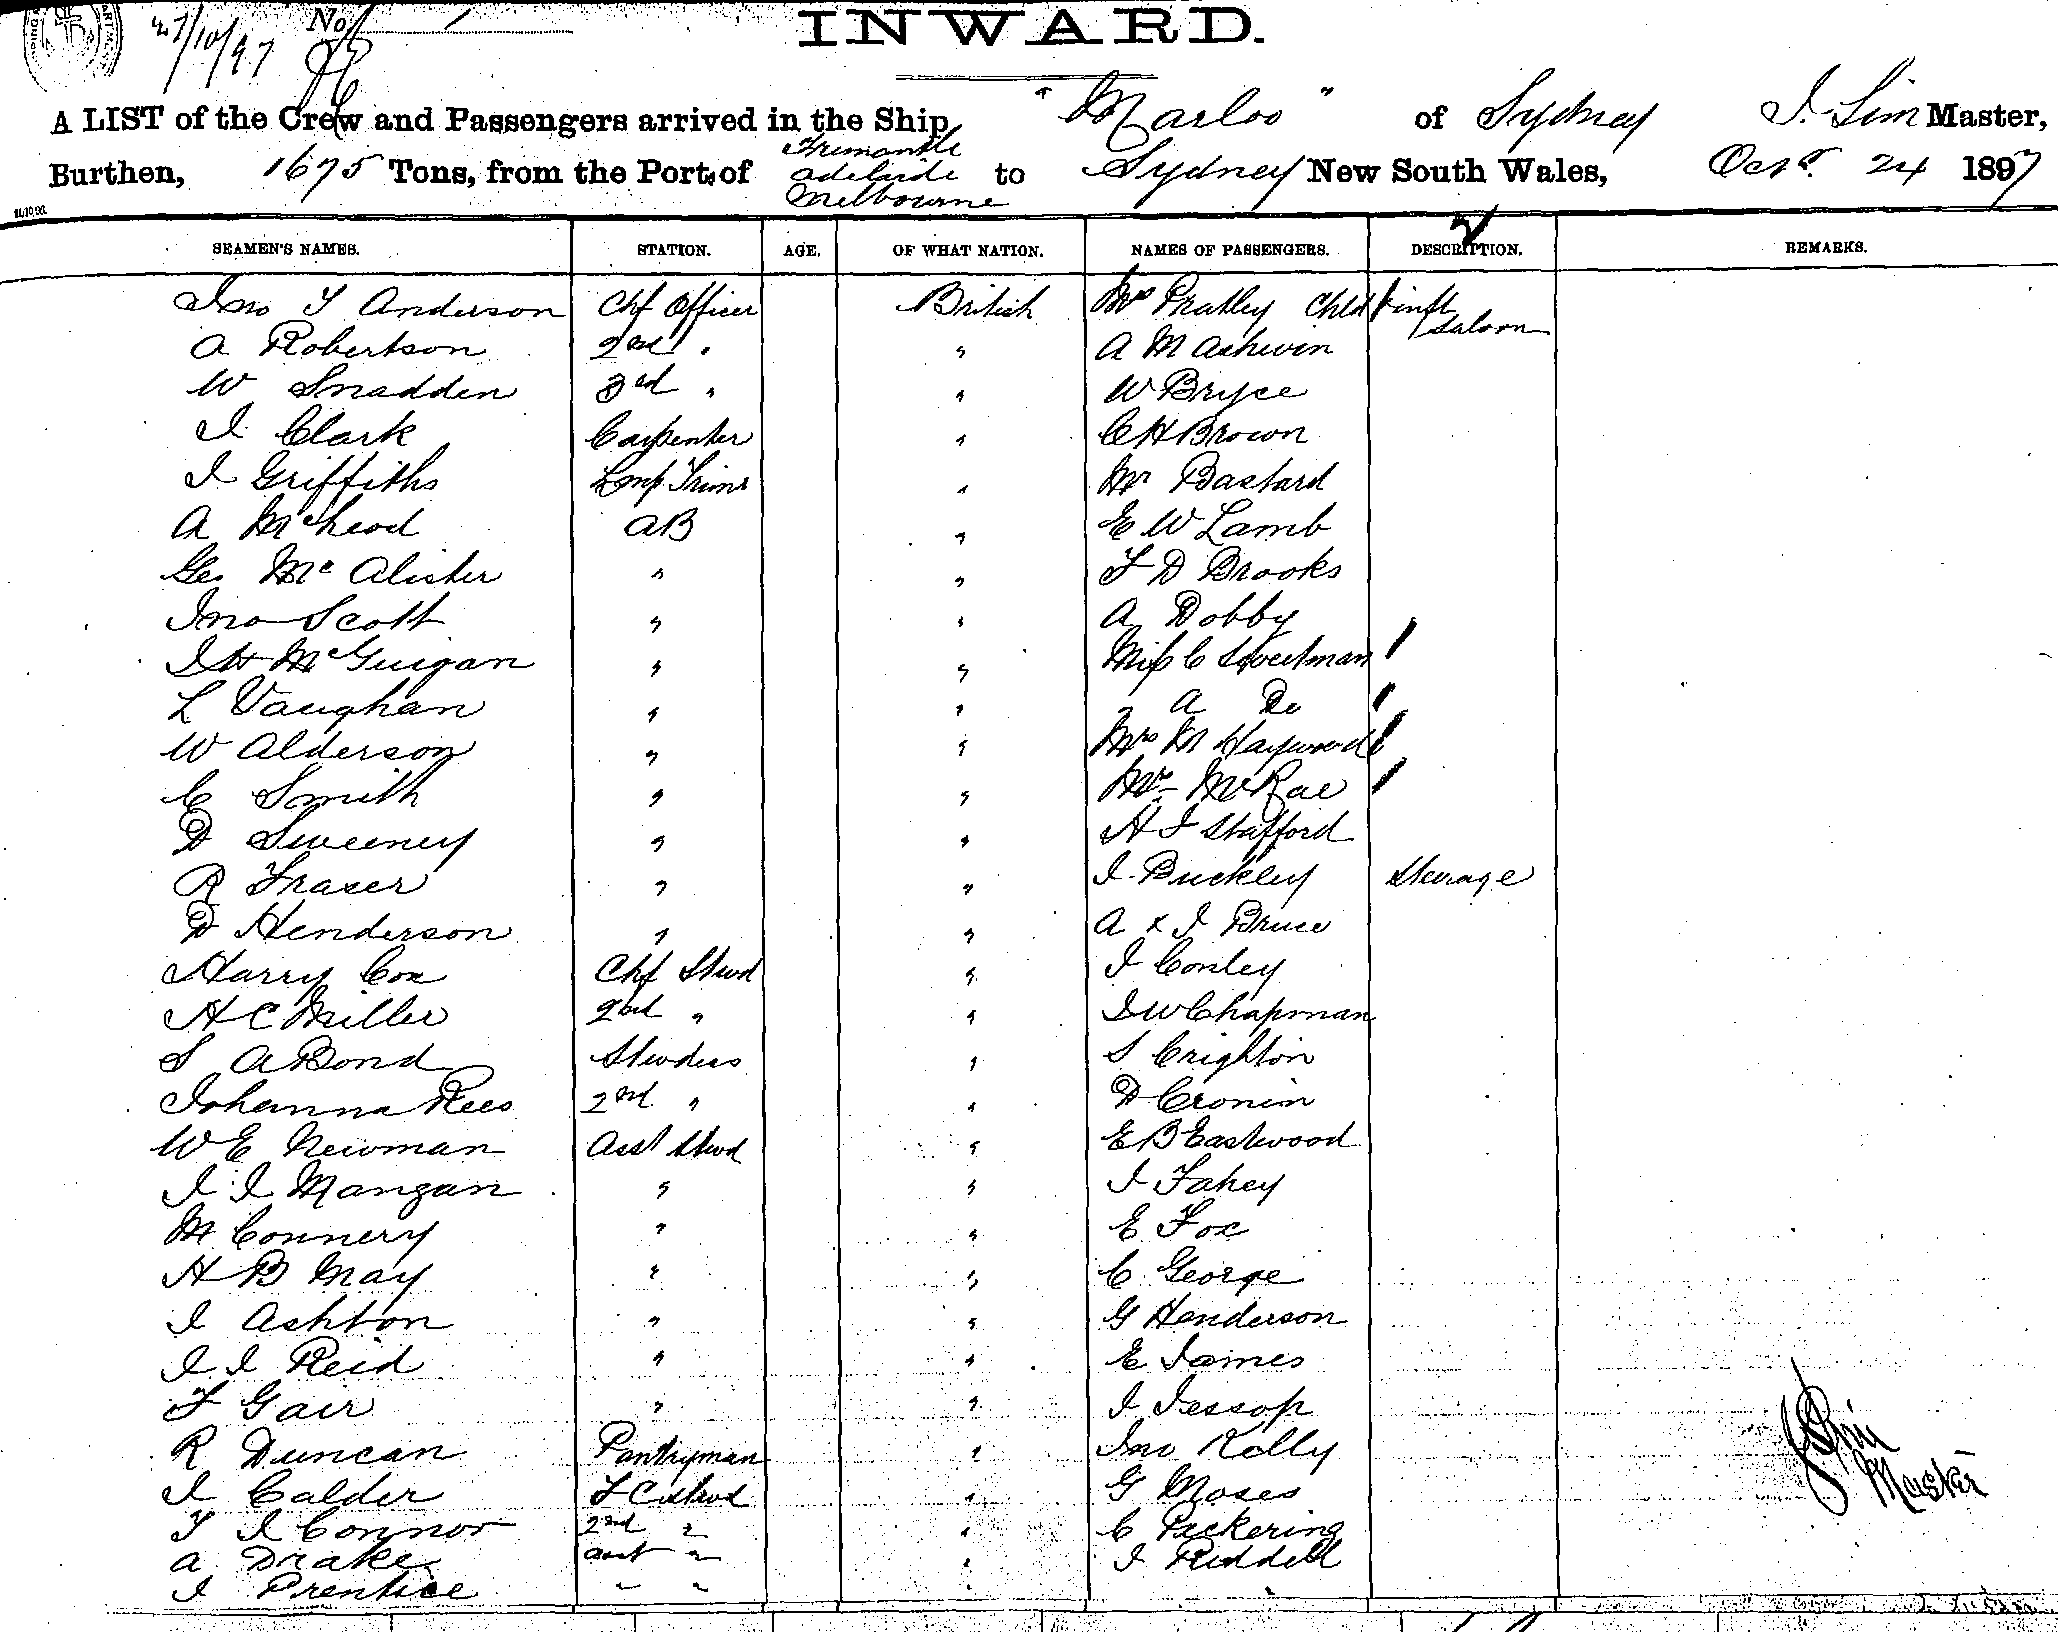 27/10/97 No
INWARD.
A LIST of the Crew and Passengers arrived in the Ship "Marloo" of Sydney J. Sim Master,
Burthen, 1675 Tons, from the Port of Fremantle Adelaide Melbourne to Sydney New South Wales, Octr 24 1897
SEAMEN'S NAMES. STATION. AGE. OF WHAT NATION. NAMES OF PASSENGERS. DESCRIPTION. REMARKS.
Jno T Anderson Chf Officer British Mrs Pratley Chld & inft Saloon
A Robertson 2nd " " A M Ashwin
W Snadden 3rd " " W Bryce
J Clark Carpenter " C H Brown
J Griffiths Lmp Trimr " Mr Bastard
A McLeod AB " E W Lamb
Geo McAlister " " F D Brooks
Jno Scott " " A Dobby
J H McGuigan " " Miss C Sweetman
L Vaughan " " " A Do
W Alderson " " Mrs M Haywood
C Smith " " Mrs McRae
D Sweeney " " H J Stafford
R Fraser " " J Buckley Steerage
D Henderson " " A & J Bruce
Harry Cox Chf Stwd " J Conley
H C Miller 2nd " " J W Chapman
S A Bond Stewdess " S Crighton
Johanna Rees 2nd " " D Cronin
W E Newman Asst Stwd " E B Eastwood
J J Mangan " " J Fahey
M Connery " " E Fox
H B May " " C George
J Ashton " " G Henderson
J J Reid " " E James
F Gair " " J Jessop
R Duncan Pantryman " Jno Kelly
J Calder F C Stwd " G Moses
T J Connor 2nd " " C Pickering
A Drake Asst " " J Riddell
J Prentice " " "
J Sim
Master